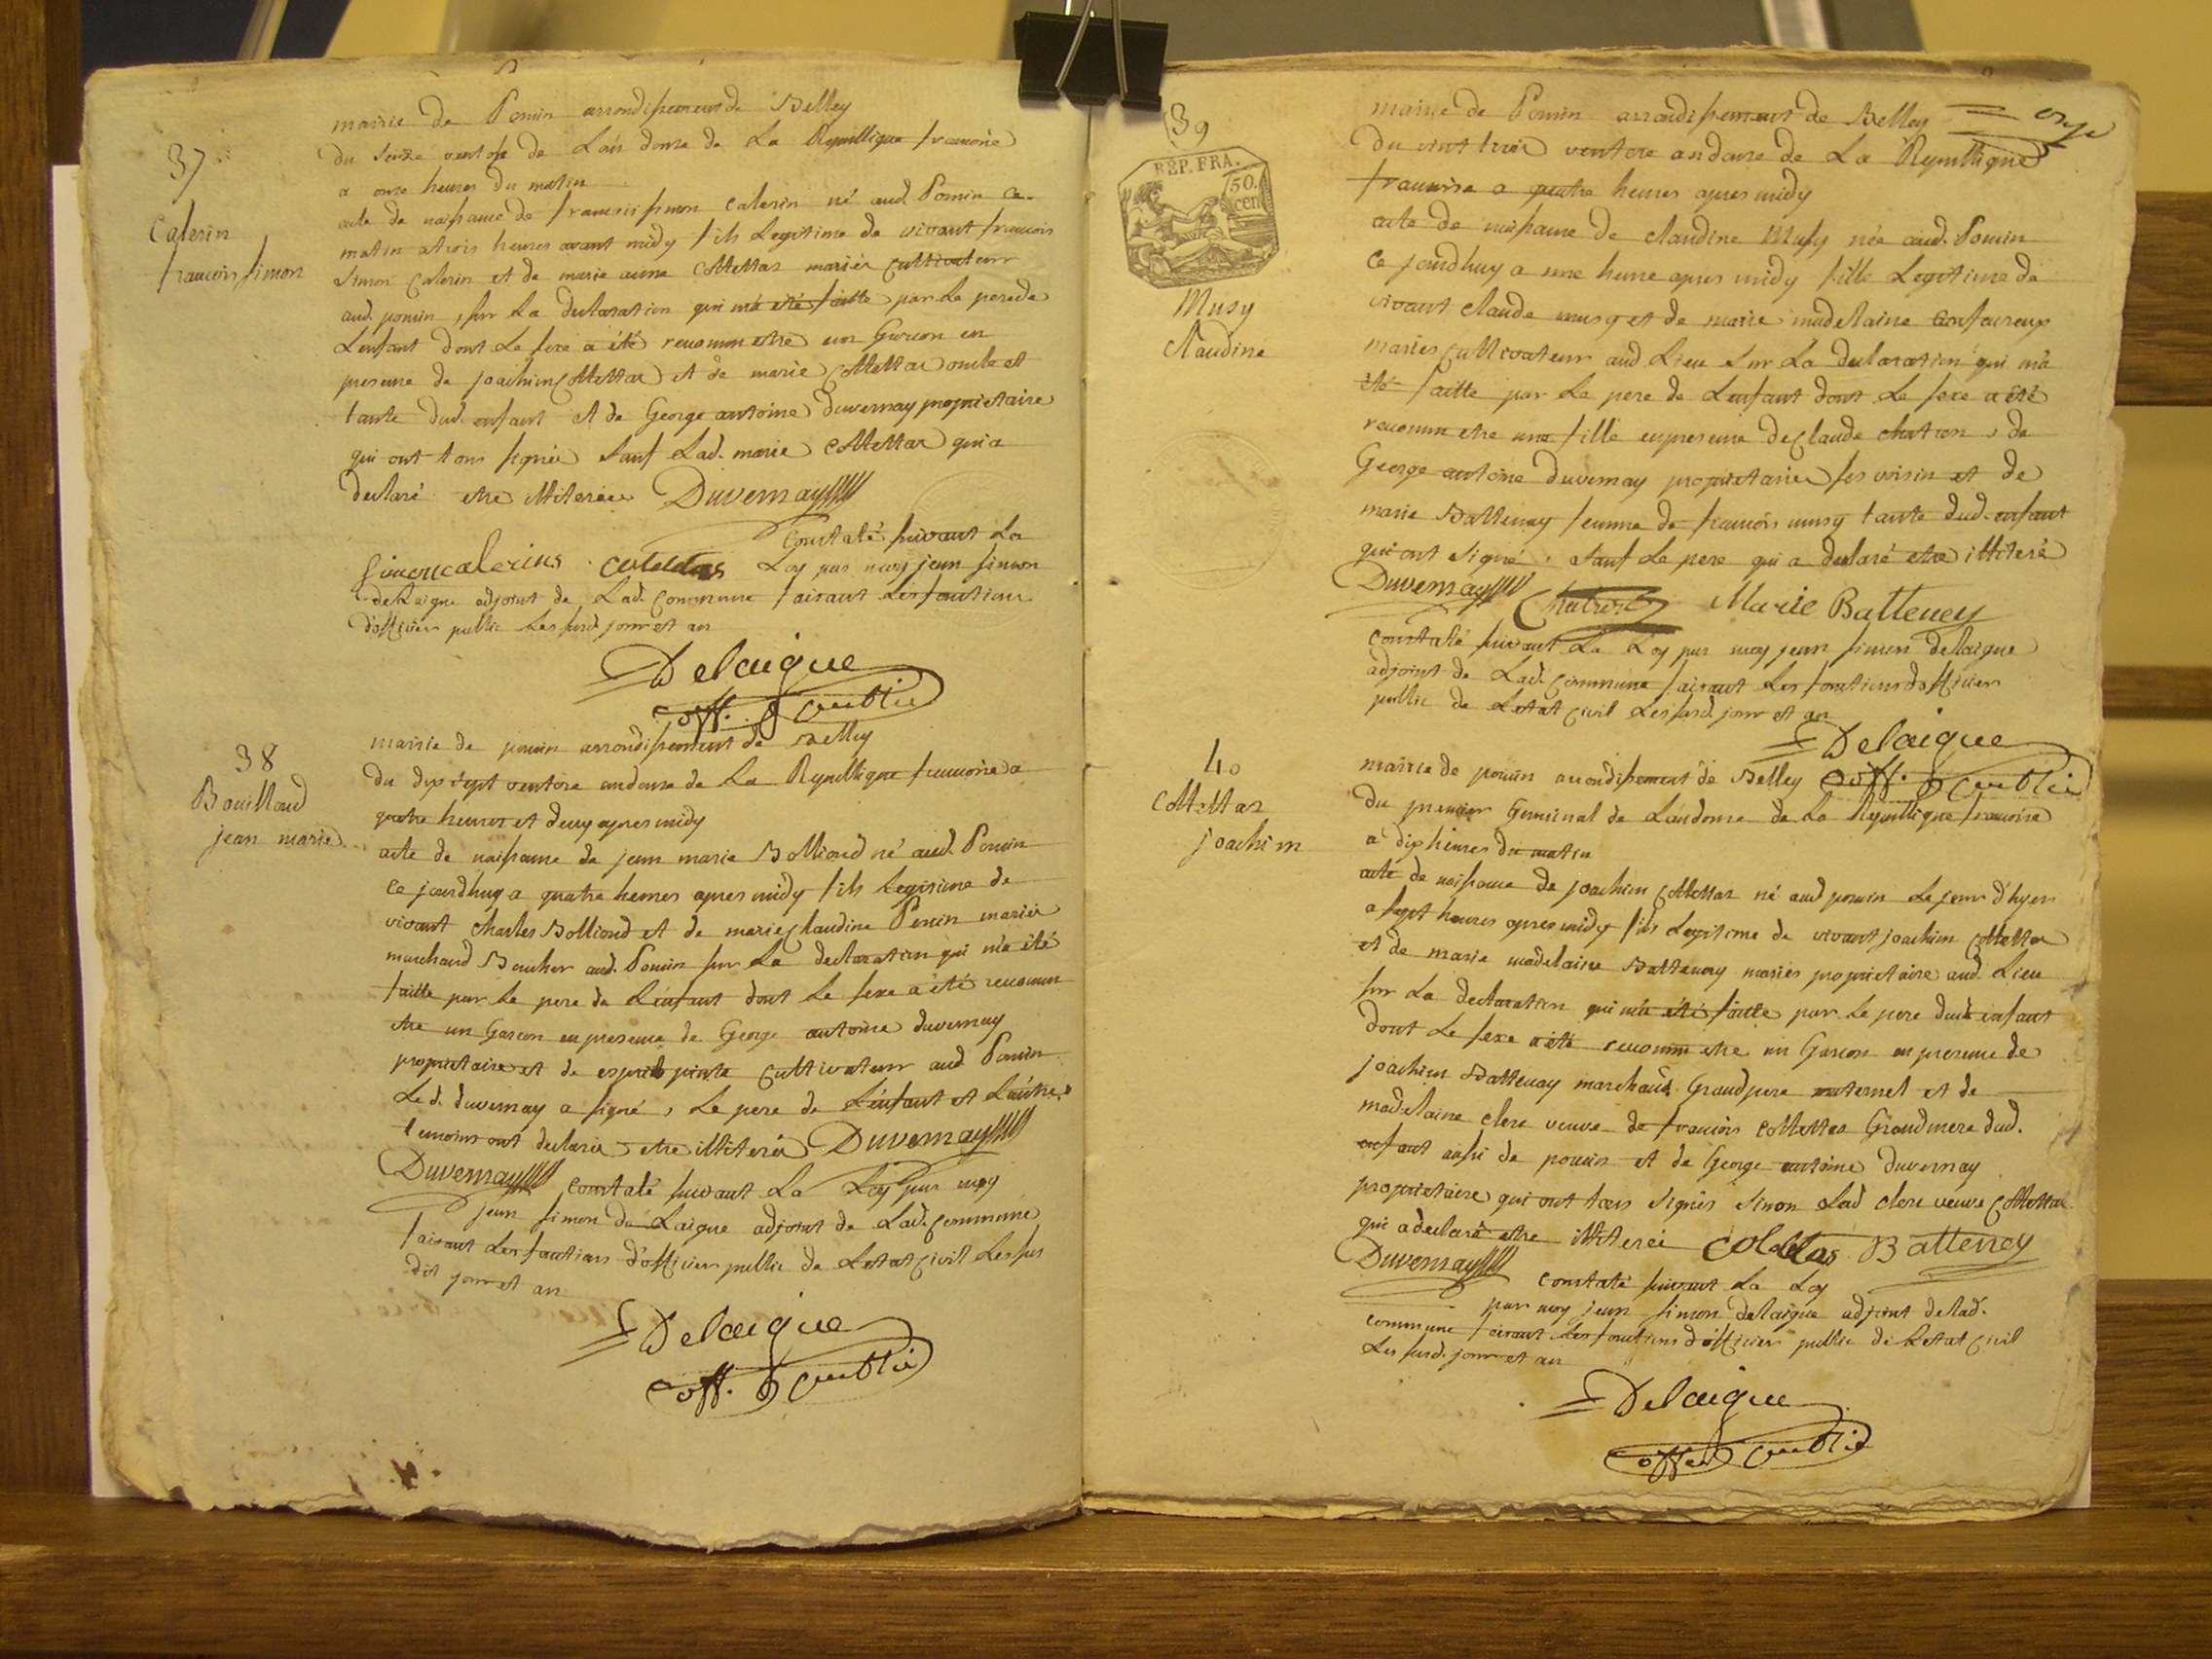 37
Calerin
francois simon
mairie de Pouin arrondissement de Belley
du seize ventose de L'an douze de La Republique francoise
a onze heures du matin
acte de naissance de francois simon Calerin né aud. Pouin ce
matin a trois heures avant midy fils Legitime de vivant francois
simon Calerin et de marie anne Cottettaz mariés cultivateurs
aud. pouin, sur La declaration qui m'a été faitte par Le pere de
L'enfant dont Le sexe a été reconnu etre un Garcon en
presence de joachim Cottettaz et de marie Cottettaz oncle et
tante dud. enfant et de George antoine duvernay proprietaire
qui ont tous signés sauf Lad. marie Cottettaz qui a
declaré etre illiterée Duvernay
Constaté suivant La
Simon calerins cotettas Loy par moy jean simon
deLaigue adjoint de Lad. Commune faisant Les fonctions
d'officier public Les susd. jour et an
Delaigue
off. public
38
Bouilloud
jean marie
mairie de pouin arrondissement de Belley
du dix sept ventose an douze de La Republique francoise a
quatre heures et demy apres midy
acte de naissance de jean marie Bolliond né aud. Pouin
ce jourdhuy a quatre heures apres midy fils Legitime de
vivant Charles Bolliond et de marie Claudine Perrin mariés
marchand Boucher aud. Pouin sur La declaration qui m'a été
faitte par Le pere de L'enfant dont Le sexe a été reconnu
etre un Garcon en presence de George antoine duvernay
proprietaire et de esprit cultivateur aud Pouin
Led. duvernay a signé, Le pere de L'enfant et L'autre
temoins ont declarés etre illiterés Duvernay
Duvernay constaté suivant La Loy par moy
jean simon de Laigue adjoint de Lad. Commune
faisant Les fonctions d'officier public de L'etat Civil Les sus
dit jour et an
Delaigue
off. public
39
REP. FRA.
50.
cen
Musy
Claudine
mairie de Pouin arrondissement de Belley = onze
du vint trois ventose an douze de La Republique
francoise a quatre heures apres midy
acte de naissance de claudine Musy née aud. Pouin
Ce jourdhuy a une heure apres midy fille Legitime de
vivant claude musy et de marie madelaine
mariés Cultivateur aud Lieu sur La declaration qui m'a
été faitte par Le pere de L'enfant dont Le sexe a été
reconnu etre une fille en presence de Claude chatron, de
George antoine duvernay proprietaires ses voisin et de
marie Battenay femme de francois musy tante dud. enfant
qui ont signé. sauf Le pere qui a declaré etre illiteré
Duvernay Chatron Marie Batteney
constaté suivant La Loy par moy jean simon delaigue
adjoint de Lad. Commune faisant Les fonctions d'officier
public de L'etat Civil Les susd. jour et an
Delaigue
off. public
40
Cottettaz
joachim
mairie de pouin arrondissement de Belley
du premier Germinal de L'an douze de La Republique francoise
a dix heures du matin
acte de naissance de joachim Cottettaz né aud pouin Le jour d'hyer
a sept heures apres midy fils Legitime de vivant joachim Cottettaz
et de marie madelaine Battenay mariés proprietaire aud. Lieu
sur La declaration qui m'a été faitte par Le pere dud. enfant
dont Le sexe a été reconnu etre un Garcon en presence de
joachim Battenay marchand Grandpere maternel et de
madelaine clerc veuve de francois Cottettaz Grandmere dud.
enfant aussi de pouin et de George antoine duvernay
proprietaire qui ont tous signés sinon Lad clerc veuve Cottettaz
qui a declaré etre illiterée colettas Batteney
Duvernay constaté suivant La Loy
par moy jean simon delaigue adjoint de lad.
commune faisant Les fonctions d'officier public de L'etat Civil
Les susd. jour et an
Delaigue
off. public